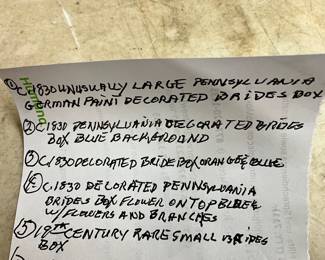 ① C1830 UNUSUALLY LARGE PENNSYLVANIA
GERMAN PAINT DECORATED BRIDES BOX
② C1830 PENNSYLVANIA DECORATED BRIDES
BOX BLUE BACKGROUND
③ C1830 DECORATED BRIDE BOX ORANGE & BLUE
④ C.1830 DECORATED PENNSYLVANIA
BRIDES BOX FLOWER ON TOP BLUE
W/ FLOWERS AND BRANCHES
⑤ 19TH CENTURY RARE SMALL BRIDES
BOX